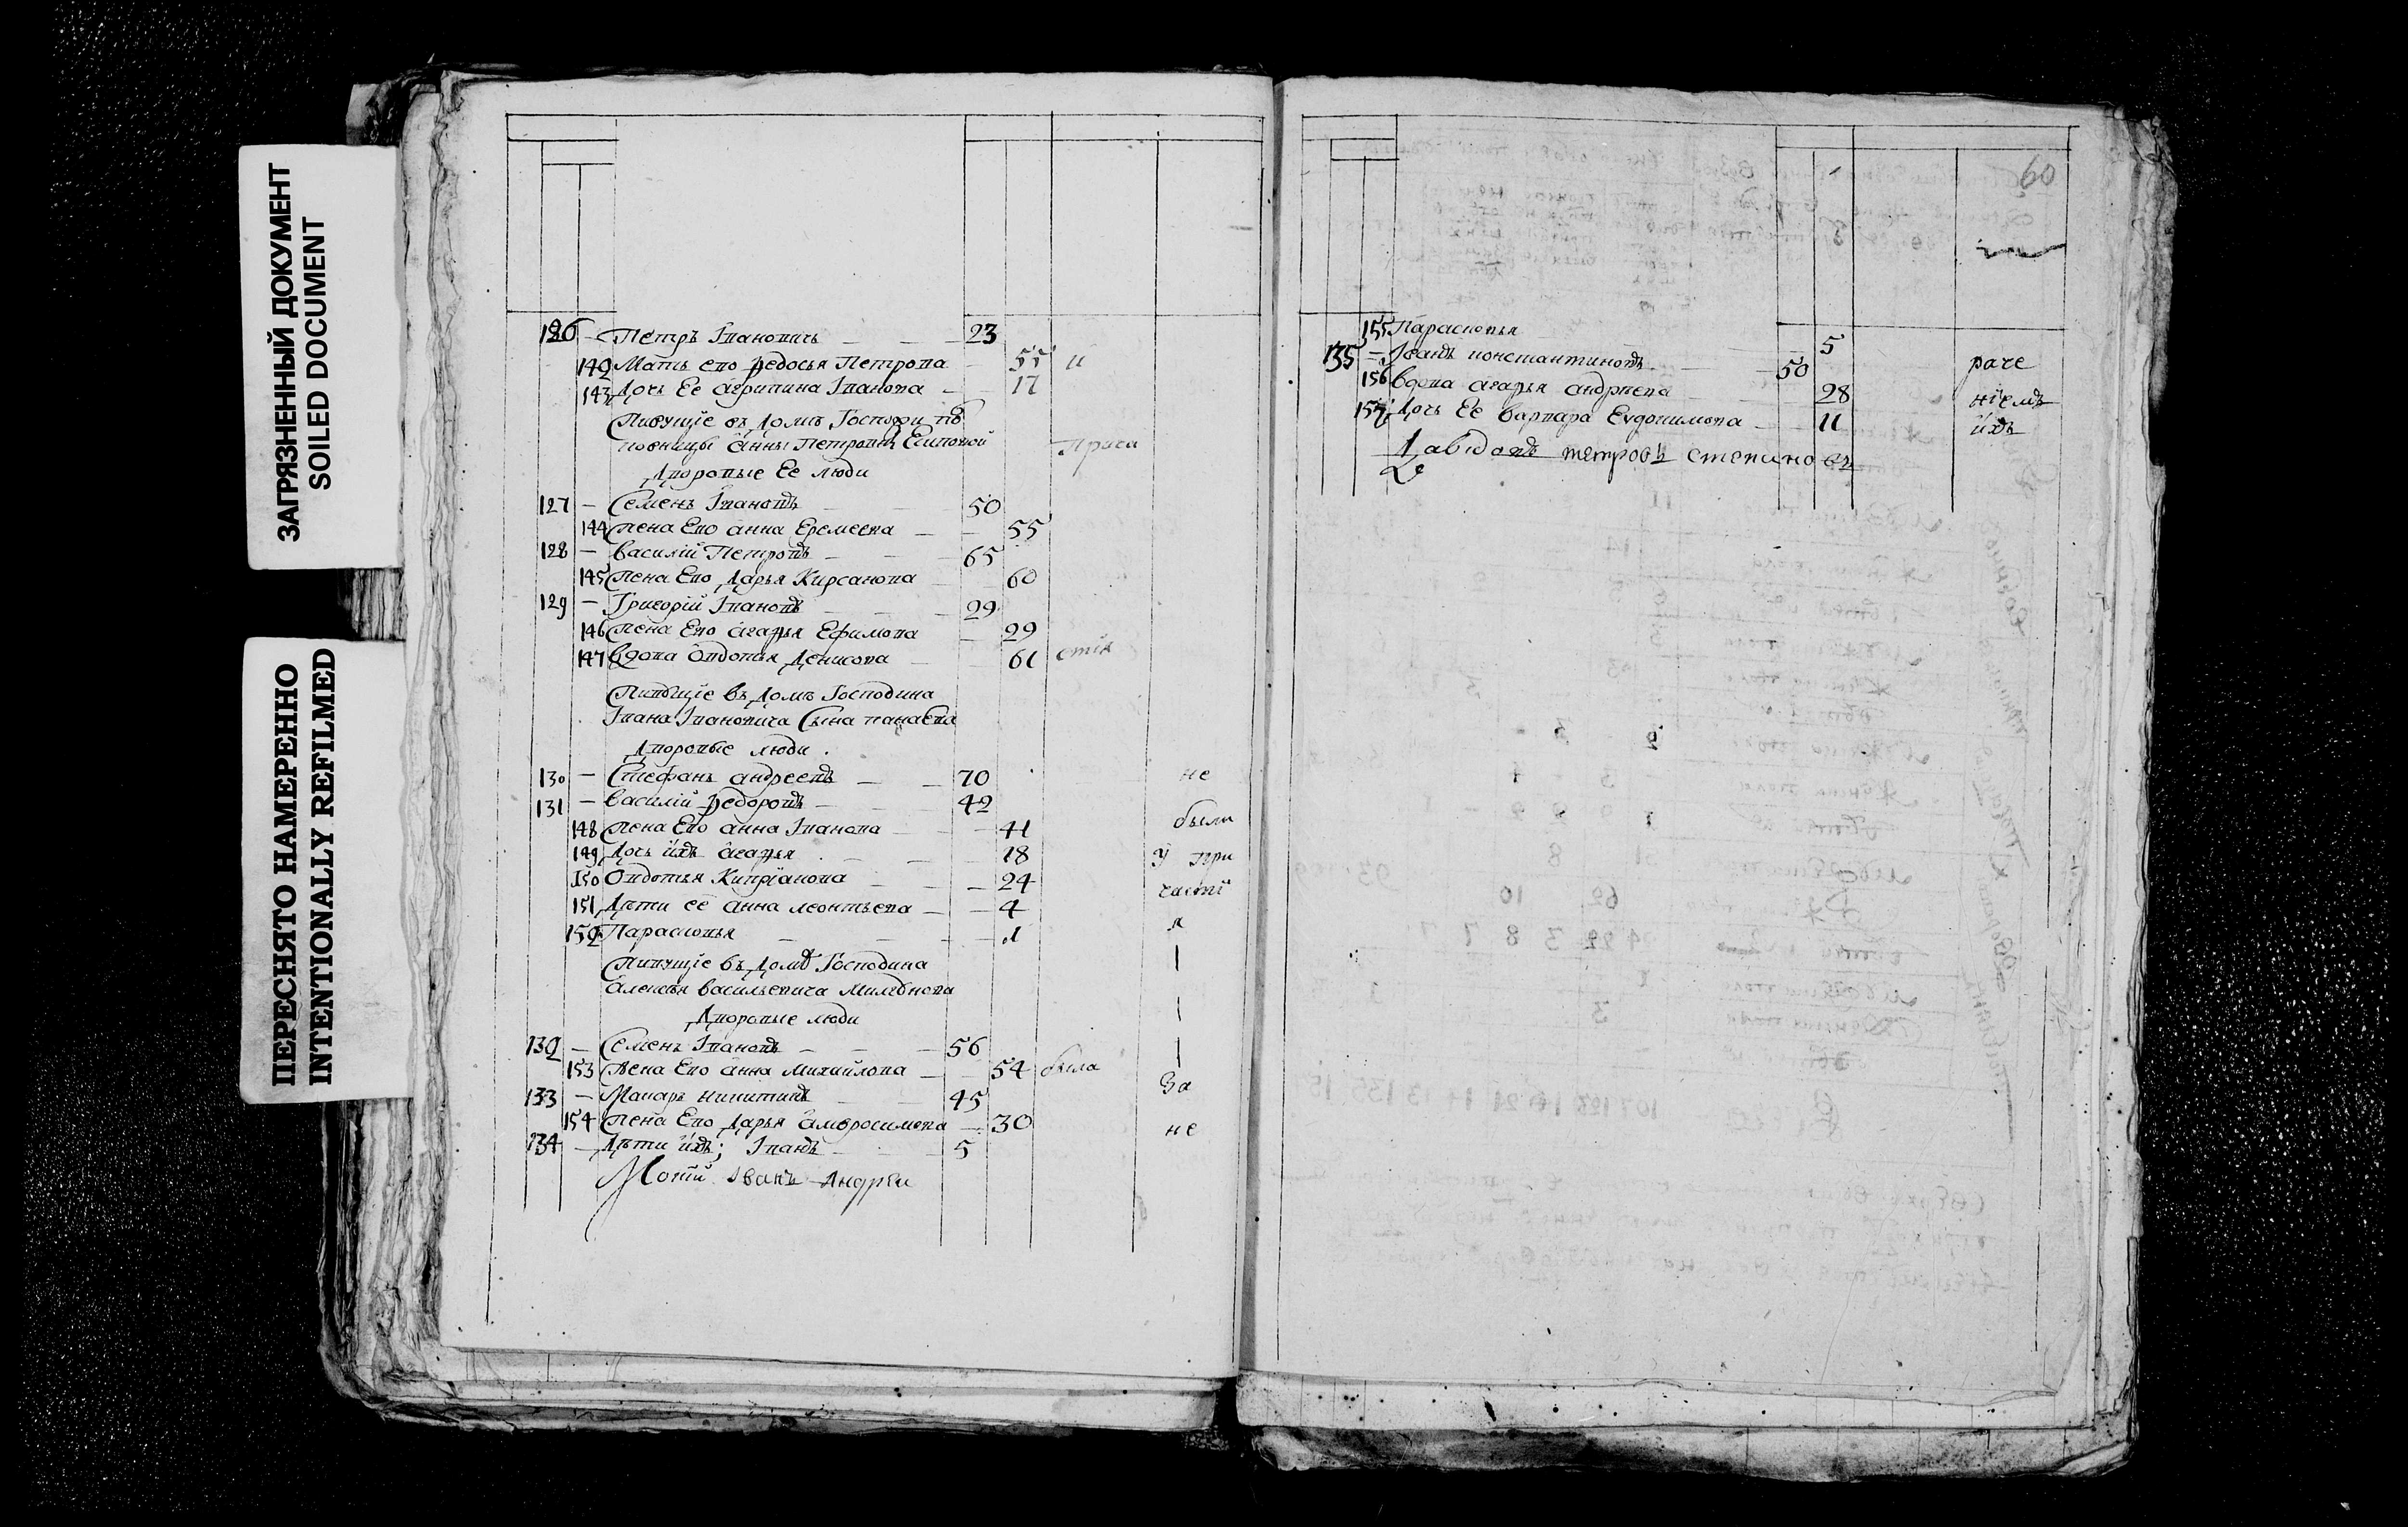 ЗАГРЯЗНЕННЫЙ ДОКУМЕНТ
SOILED DOCUMENT
ПЕРЕСНЯТО НАМЕРЕННО
INTENTIONALLY REFILMED
126 — Петръ Ивановичь — 23
142 Мать ево Ѳедосья Петрова — 55 и
143 Дочь Ее агрипина Іванова — 17
Живущіе въ домѣ Госпожи
анны Петровны Прича
Дворовые Ее люди
127 — Семенъ Івановъ — 50
144 Жена Ево анна Еремеева — 55
128 — василій Петровъ — 65
145 Жена Ево Дарья Кирсанова — 60
129 — Григорій Івановъ — 29
146 Жена Ево агафья Ефимова — 29
147 вдова Овдотья Денисова — 61 стіи
Живущіе въ домѣ Господина
Івана Івановича Сына панаева
Дворовые люди
130 — Стефанъ андреевъ — 70 не
131 — василій Ѳедоровъ — 42
148 Жена Ево анна Іванова — 41 были
149 Дочь ихъ агафья — 18 у при
150 Овдотья Кипріанова — 24 частї
151 Дѣти ее анна леонтьева — 4
152 Парасковья — 1 я
Живущіе въ домѣ Господина
алексѣя васильевича Милюкова
Дворовые люди
132 — Семенъ Івановъ — 56
153 Жена Ево анна михайлова — 54 была
За
133 — Макаръ никитинъ — 45
154 Жена Ево Дарья амвросимова — 30 не
134 — Дѣти ихъ; Іванъ — 5
Іванъ Андрѣи
60
155 Парасковья — 5
135 — Іванъ константиновъ — 50 раче
156 вдова агафья андреева — 28 нїемъ
157 Дочь Ее варвара Евдокимова — 11 ихъ
Давидовъ петровъ степановъ